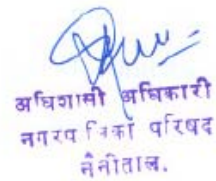 अधिशासी अधिकारी
नगरपालिका परिषद
नैनीताल.